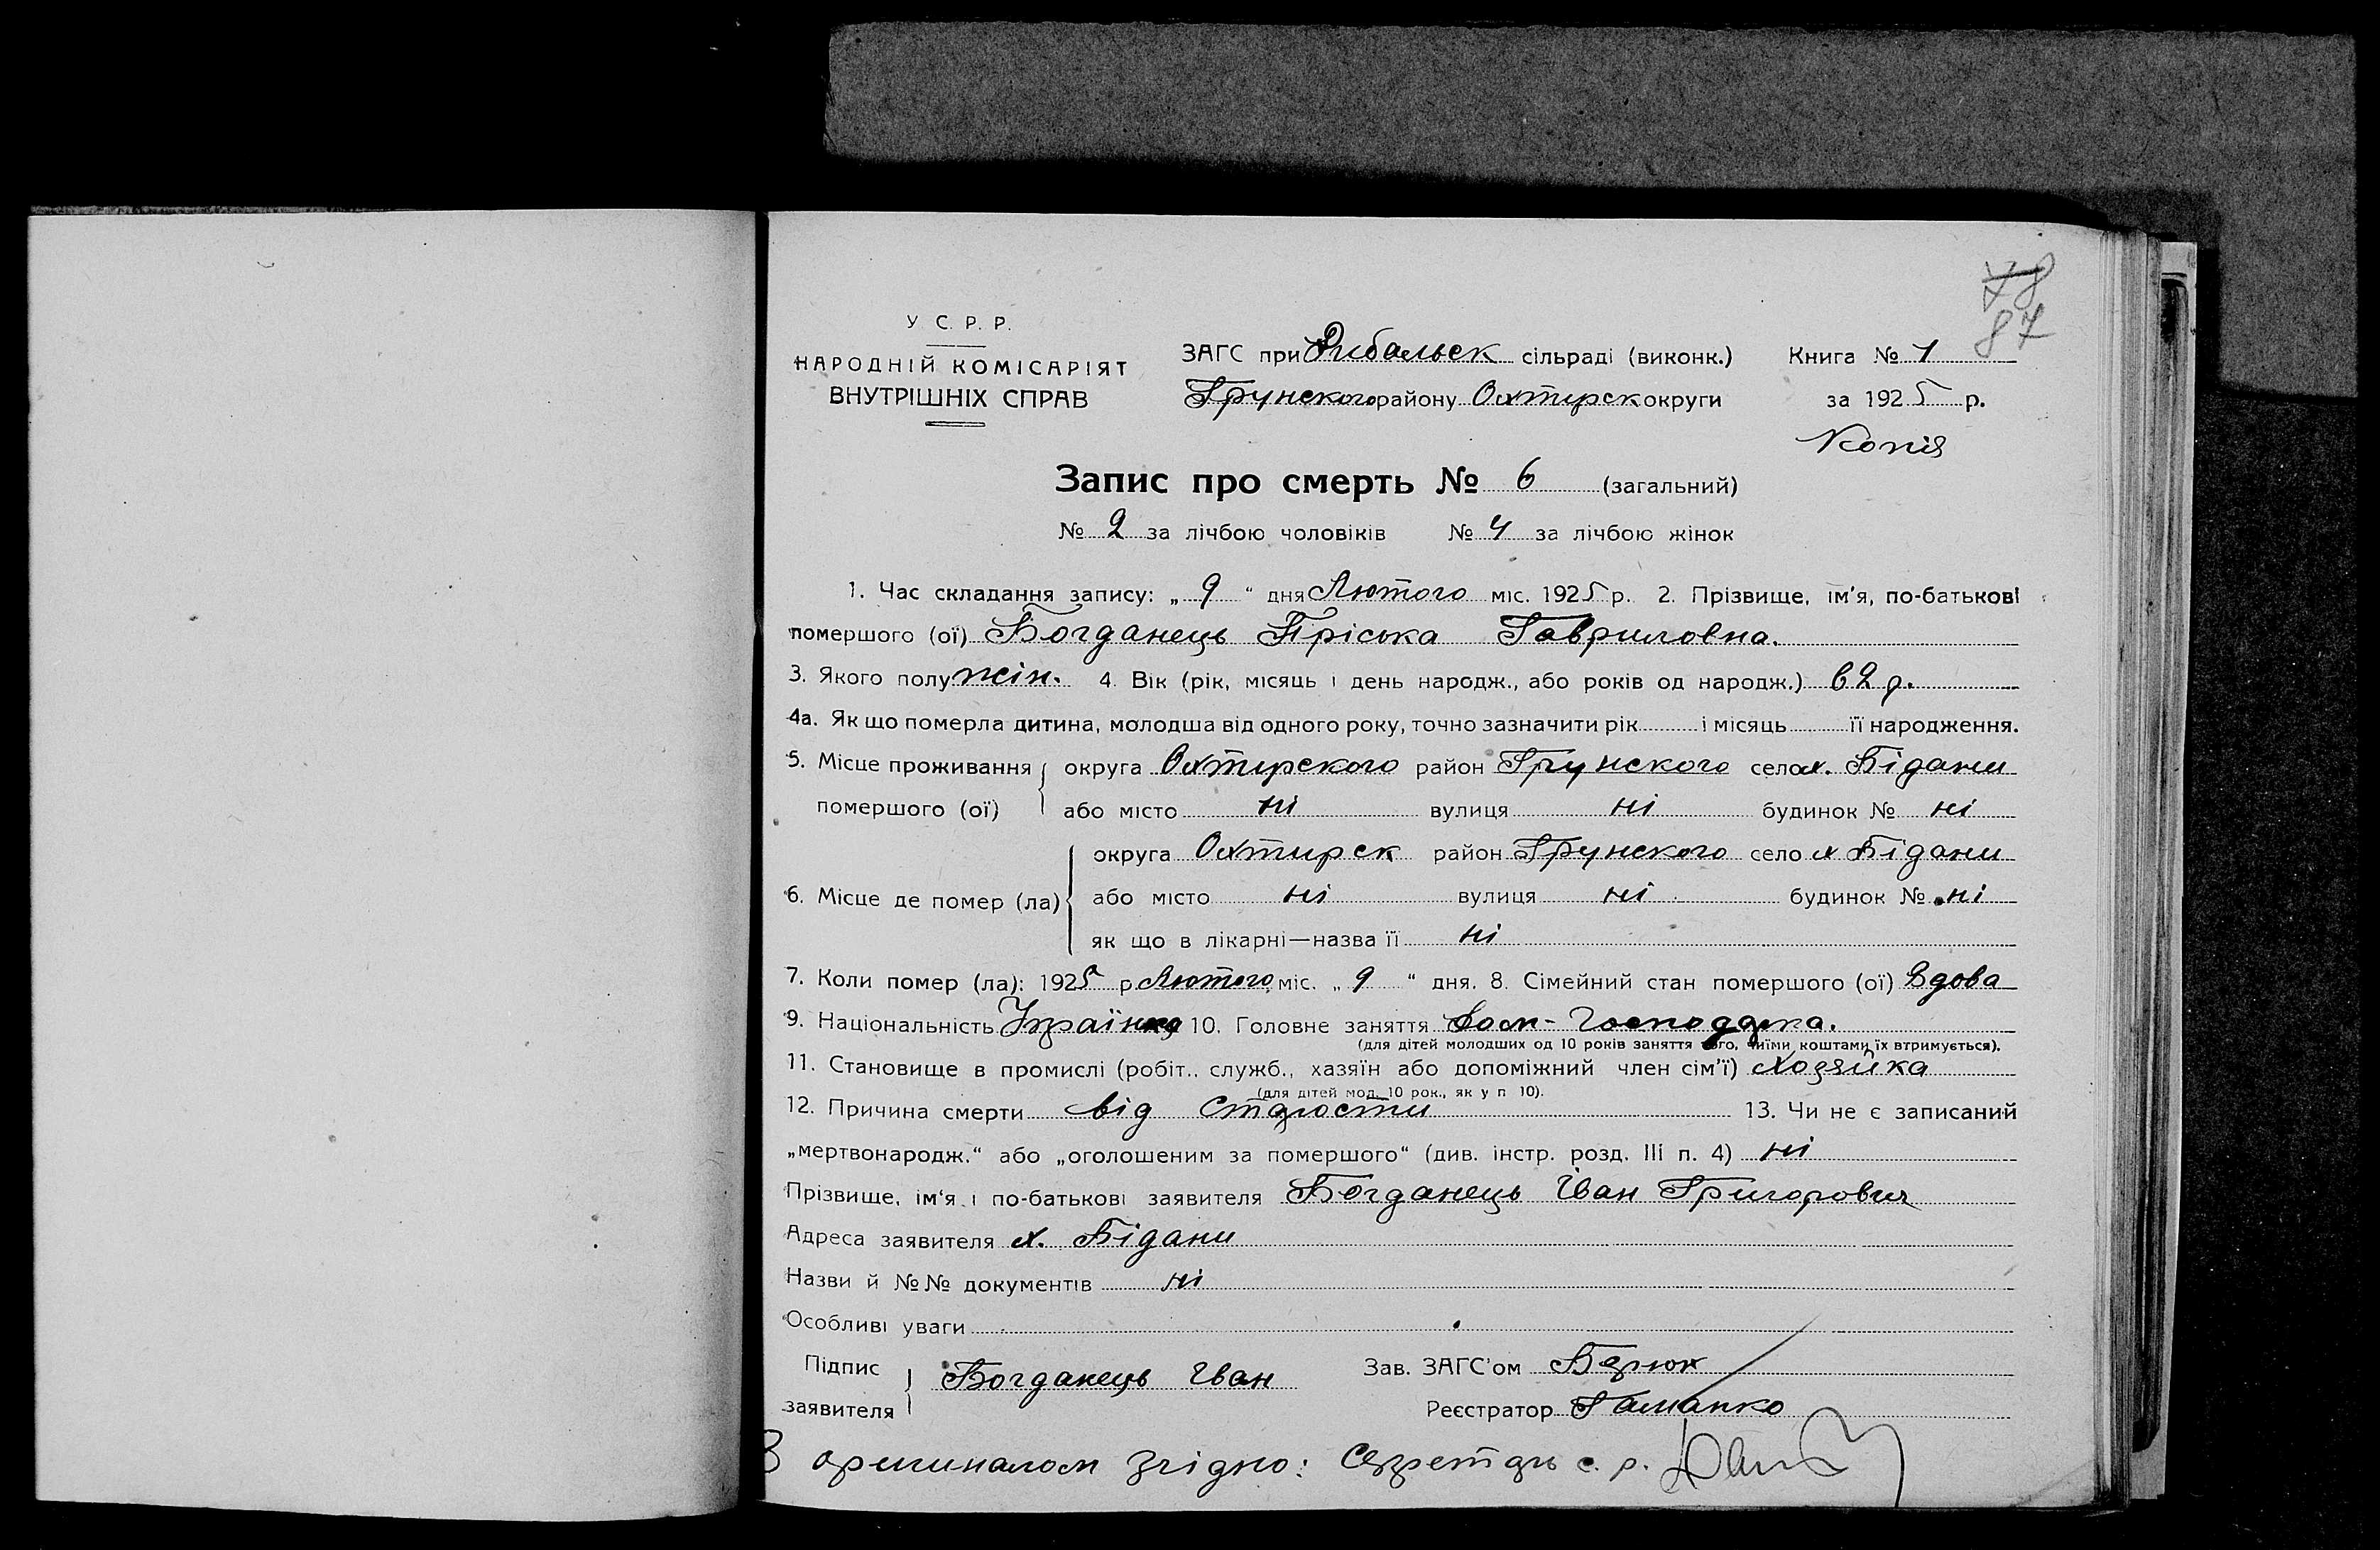 78
87
У С. Р. Р.
НАРОДНІЙ КОМІСАРІЯТ
ВНУТРІШНІХ СПРАВ
ЗАГС при Рибальск сільраді (виконк.)
Грунского району Охтирск округи
Книга № 1
за 1925 р.
Копія
Запис про смерть № 6 (загальний)
№ 2 за лічбою чоловіків № 4 за лічбою жінок
1. Час складання запису: „ 9 “ дня Лютого міс. 1925 р. 2. Прізвище, ім'я, по-батькові
помершого (ої) Богданець Пріська Гавриловна.
3. Якого полу жін. 4. Вік (рік, місяць і день народж., або років од народж.) 62 р.
4а. Як що померла дитина, молодша від одного року, точно зазначити рік і місяць її народження.
5. Місце проживання помершого (ої)
округа Охтирского район Грунского село х. Бідани
або місто ні вулиця ні будинок № ні
6. Місце де помер (ла)
округа Охтирск район Грунского село х Бідани
або місто ні вулиця ні будинок № ні
як що в лікарні—назва її ні
7. Коли помер (ла): 1925 р. Лютого міс. „ 9 “ дня. 8. Сімейний стан помершого (ої) Вдова
9. Національність Українка 10. Головне заняття Дом-Господарка.
(для дітей молодших од 10 років заняття того, чиїми коштами їх втримується).
11. Становище в промислі (робіт.. служб., хазяїн або допоміжний член сім'ї) Хозяйка
(для дітей мод. 10 рок., як у п 10).
12. Причина смерти від старости 13. Чи не є записаний
„мертвонародж.“ або „оголошеним за помершого“ (див. інстр. розд. III п. 4) ні
Прізвище, ім'я і по-батькові заявителя Богданець Іван Григорович
Адреса заявителя х. Бідани
Назви й №№ документів ні
Особливі уваги
Підпис заявителя Богданець Іван
Зав. ЗАГС'ом Бірюк
Реєстратор
З оригиналом згідно: Секретарь с. р.